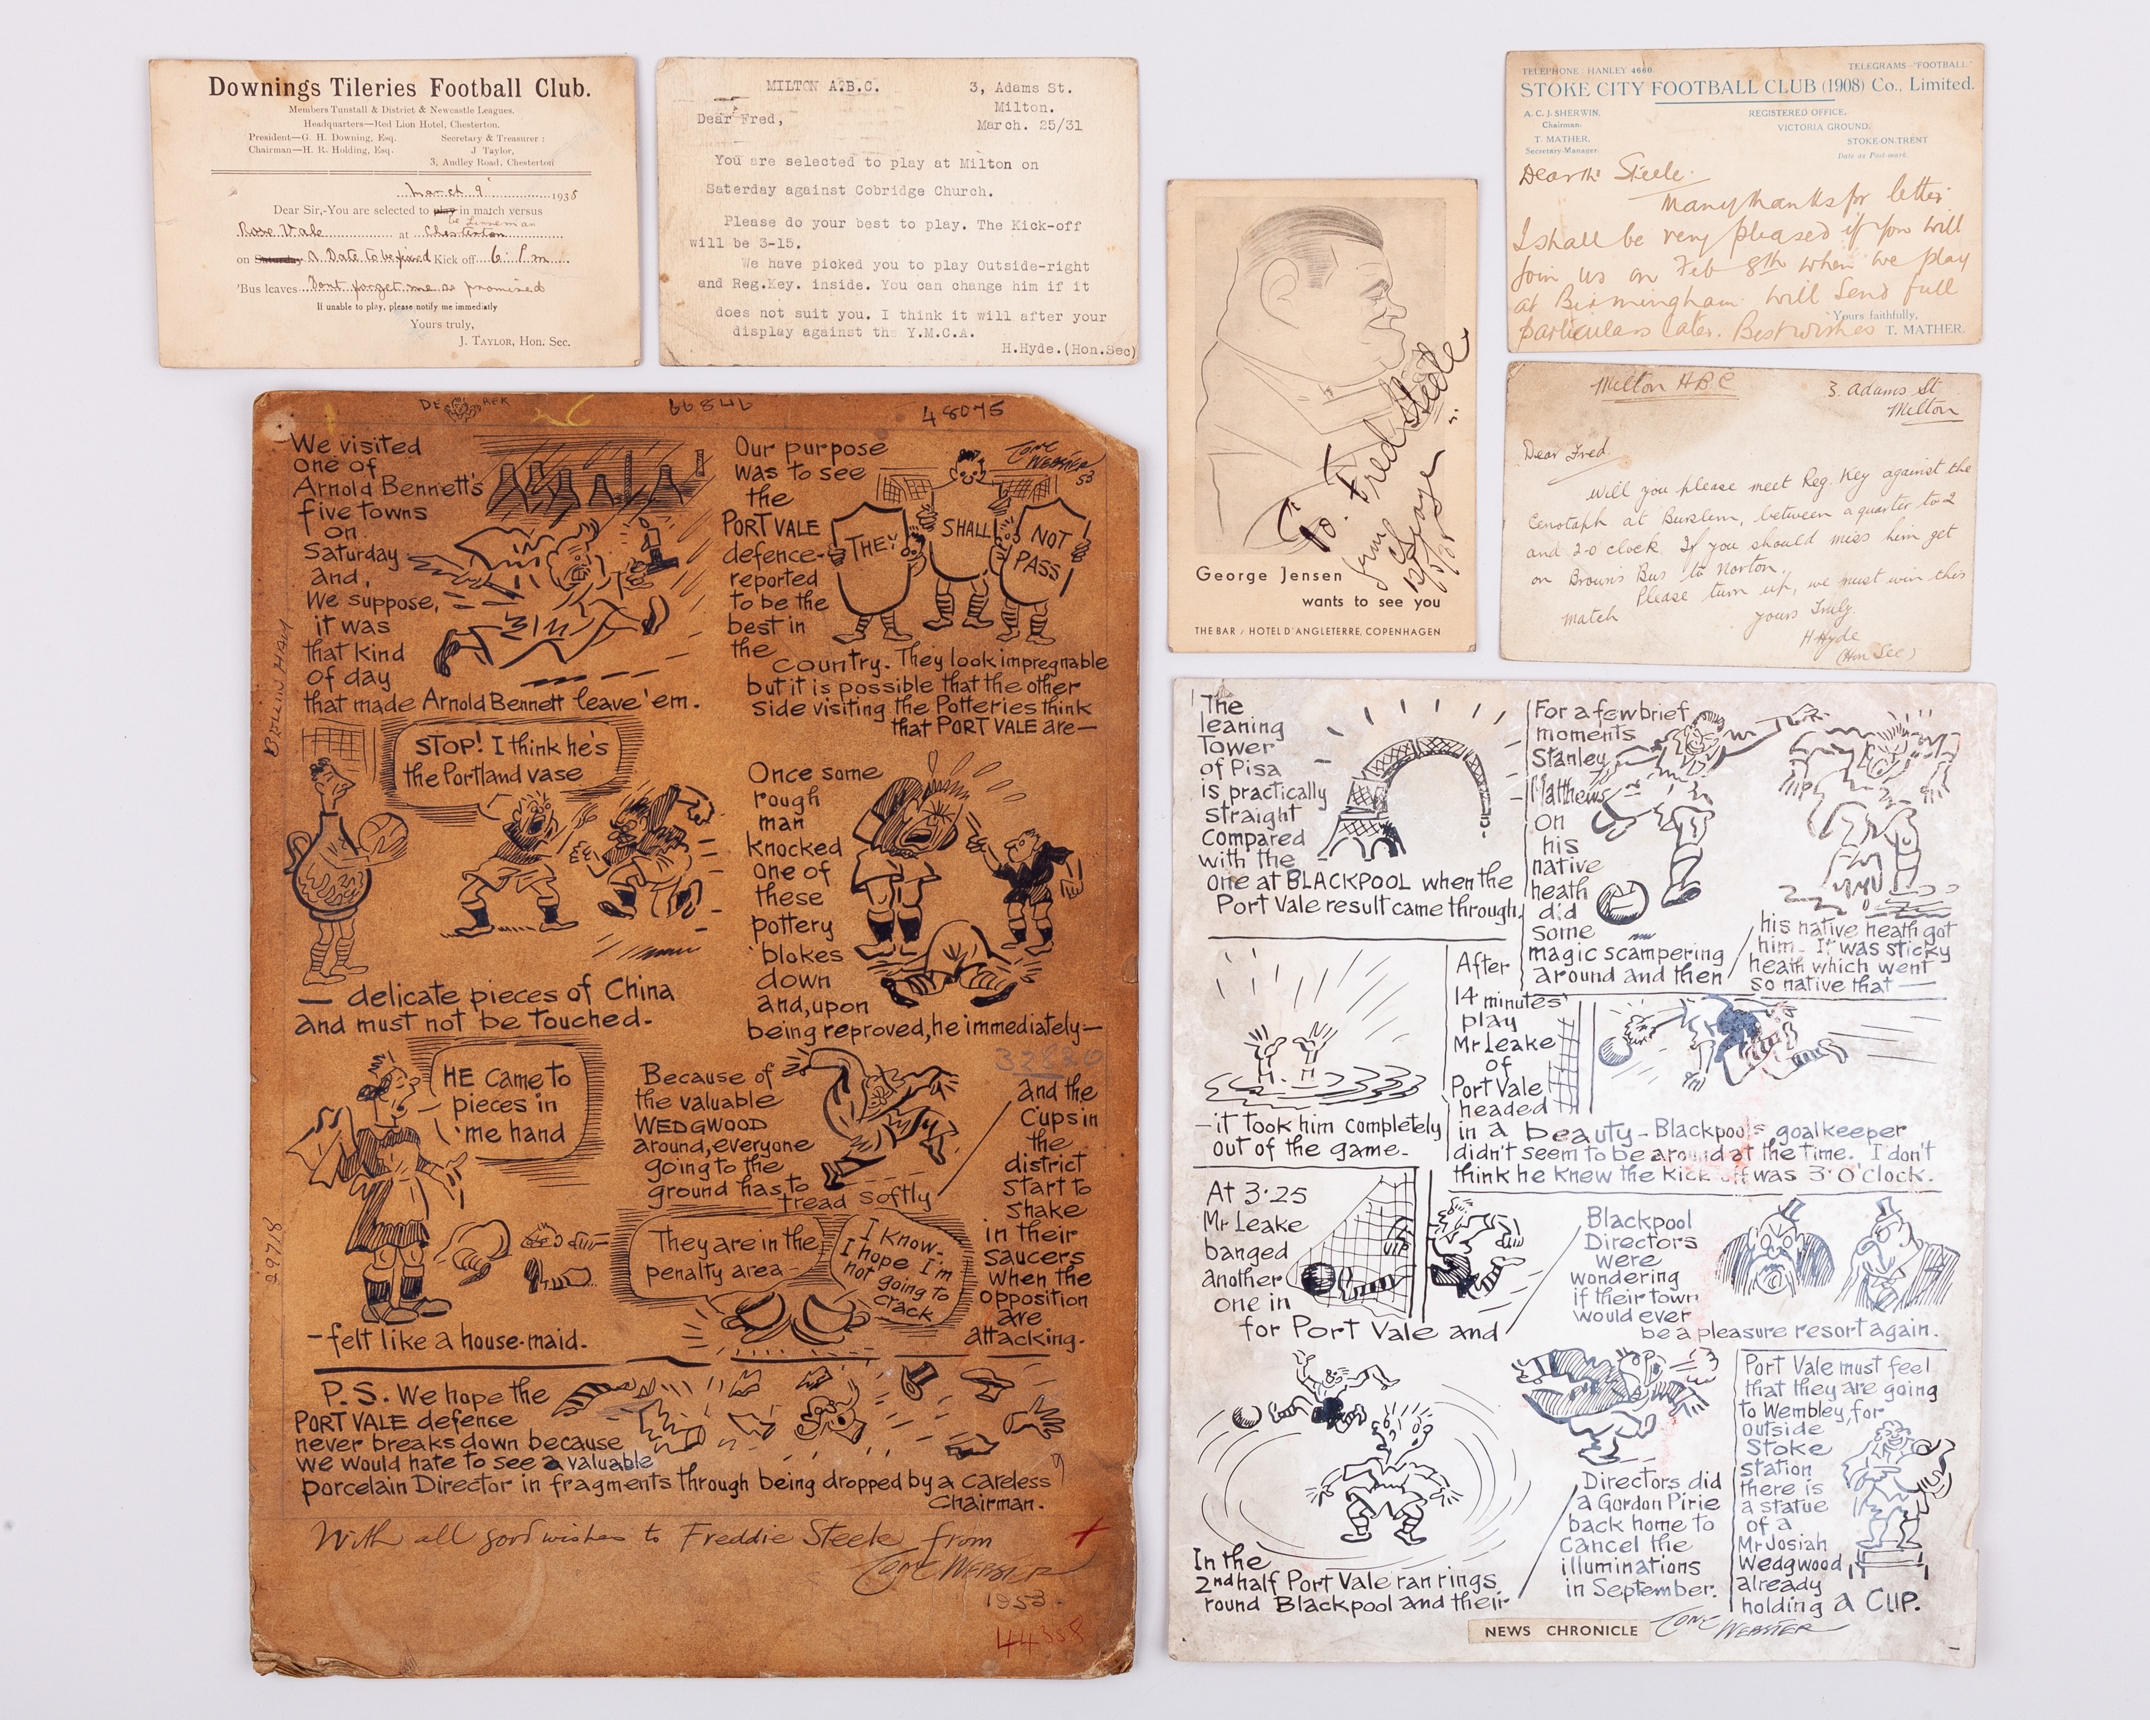 Downings Tileries Football Club.
Members Tunstall & District & Newcastle Leagues.
Headquarters—Red Lion Hotel, Chesterton.
President—G. H. Downing, Esq.
Chairman—H. R. Holding, Esq.
Secretary & Treasurer :
J Taylor,
3, Audley Road, Chesterton
March 9 1938
Dear Sir,-You are selected to play in match versus
be Linesman
Rose Vale at Chesterton
on Saturday A Date to be fixed Kick off 6. P.m
'Bus leaves Dont forget me as promised
If unable to play, please notify me immediately
Yours truly,
J. TAYLOR, Hon. Sec.
MILTON A.B.C.
3, Adams St.
Milton.
March. 25/31
Dear Fred,
You are selected to play at Milton on
Saterday against Cobridge Church.
Please do your best to play. The Kick-off
will be 3-15.
We have picked you to play Outside-right
and Reg.Key. inside. You can change him if it
does not suit you. I think it will after your
display against the Y.M.C.A.
H.Hyde.(Hon.Sec)
To. Fred Steele
George Jensen
wants to see you
THE BAR / HOTEL D'ANGLETERRE, COPENHAGEN
TELEPHONE: HANLEY 4660.
TELEGRAMS—"FOOTBALL"
STOKE CITY FOOTBALL CLUB (1908) Co., Limited.
A. C. J. SHERWIN,
Chairman.
T. MATHER,
Secretary-Manager.
REGISTERED OFFICE,
VICTORIA GROUND,
STOKE-ON-TRENT
Date as Post-mark.
Dear Mr Steele.
Many thanks for letter
I shall be very pleased if you will
join us on Feb 8th when we play
at Birmingham. Will send full
particulars later. Best wishes
Yours faithfully,
T. MATHER.
Milton A B C
3. Adams St
Milton
Dear Fred.
Will you please meet Reg. Key against the
Cenotaph at Burslem, between a quarter to 2
and 2-0 clock. If you should miss him get
on Brown's Bus to Norton.
Please turn up, we must win this
match
yours Truly.
H Hyde
(Hon Sec)
DE REK
66846
48075
We visited
one of
Arnold Bennett's
five towns
on
Saturday
and,
We suppose,
it was
that kind
of day
that made Arnold Bennett leave 'em.
Our purpose
was to see
the
PORT VALE
defence-
reported
to be the
best in
the
country. They look impregnable
but it is possible that the other
side visiting the Potteries think
that PORT VALE are—
TOM WEBSTER
53
THEY
SHALL
NOT
PASS
STOP! I think he's
the Portland vase
— delicate pieces of China
and must not be touched.
Once some
rough
man
knocked
one of
these
pottery
'blokes
down
and, upon
being reproved, he immediately—
HE came to
pieces in
'me hand
— felt like a house-maid.
Because of
the valuable
WEDGWOOD
around, everyone
going to the
ground has to
tread softly
and the
Cups in
the
district
start to
shake
in their
saucers
when the
opposition
are
attacking.
They are in the
penalty area-
I know-
I hope I'm
not going to
crack
P.S. We hope the
PORT VALE defence
never breaks down because
we would hate to see a valuable
porcelain Director in fragments through being dropped by a careless
Chairman.
With all good wishes to Freddie Steele from
TOM WEBSTER
1953.
29718
The
leaning
Tower
of Pisa
is practically
straight
compared
with the
one at BLACKPOOL when the
Port Vale result came through.
For a few brief
moments
Stanley
Matthews
on
his
native
heath
did
some
magic scampering
around and then
his native heath got
him. It was sticky
heath which went
so native that —
— it took him completely
out of the game.
After
14 minutes'
play
Mr Leake
of
Port Vale
headed
in a beauty - Blackpool's goalkeeper
didn't seem to be around at the time. I don't
think he knew the kick off was 3 'O' clock.
At 3.25
Mr Leake
banged
another
one in
for Port Vale and
Blackpool
Directors
were
wondering
if their town
would ever
be a pleasure resort again.
In the
2nd half Port Vale ran rings
round Blackpool and their
Directors did
a Gordon Pirie
back home to
cancel the
illuminations
in September.
Port Vale must feel
that they are going
to Wembley, for
outside
Stoke
station
there is
a statue
of a
Mr Josiah
Wedgwood
already
holding a CUP.
NEWS CHRONICLE
TOM WEBSTER